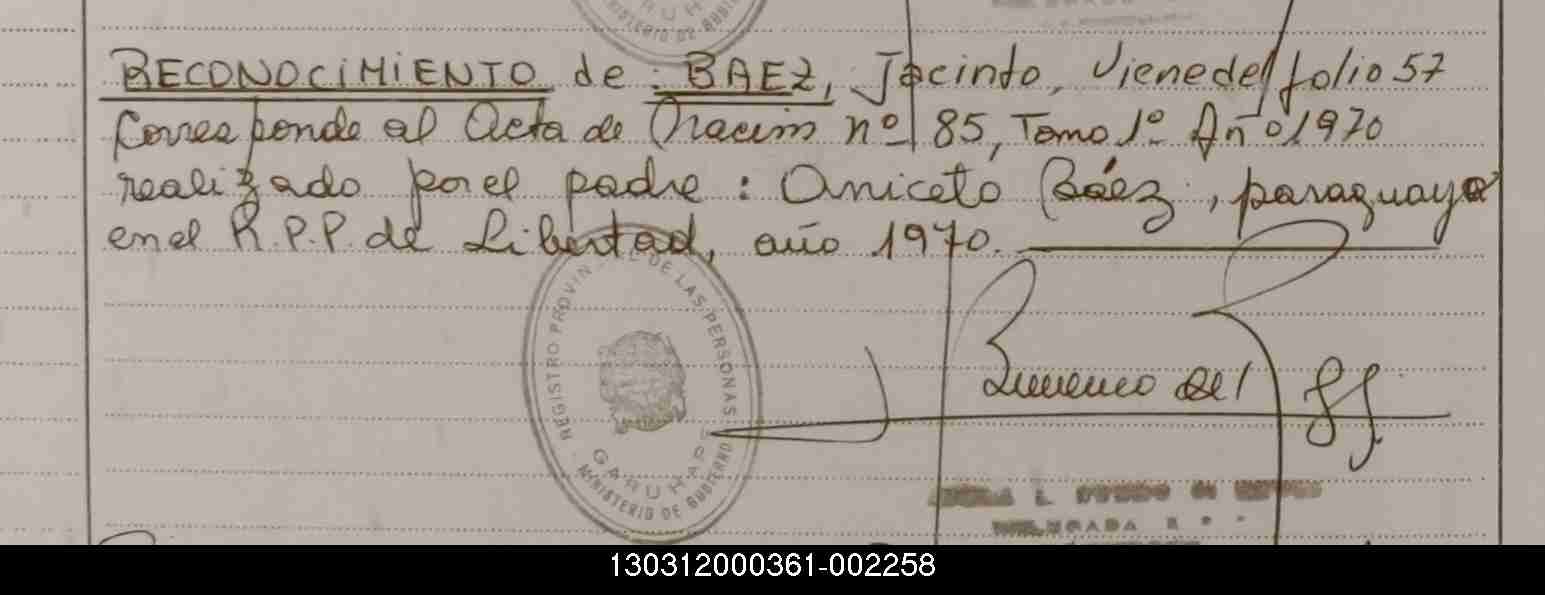 RECONOCIMIENTO de: BAEZ, Jacinto, Viene del folio 57
Corresponde al Acta de Nacim nº 85, Tomo 1º Año 1970
realizado por el padre: Aniceto Báez, paraguayo
en el R.P.P. de Libertad, año 1970.
REGISTRO PROVINCIAL DE LAS PERSONAS
GARUHAPE
MINISTERIO DE GOBIERNO
130312000361-002258